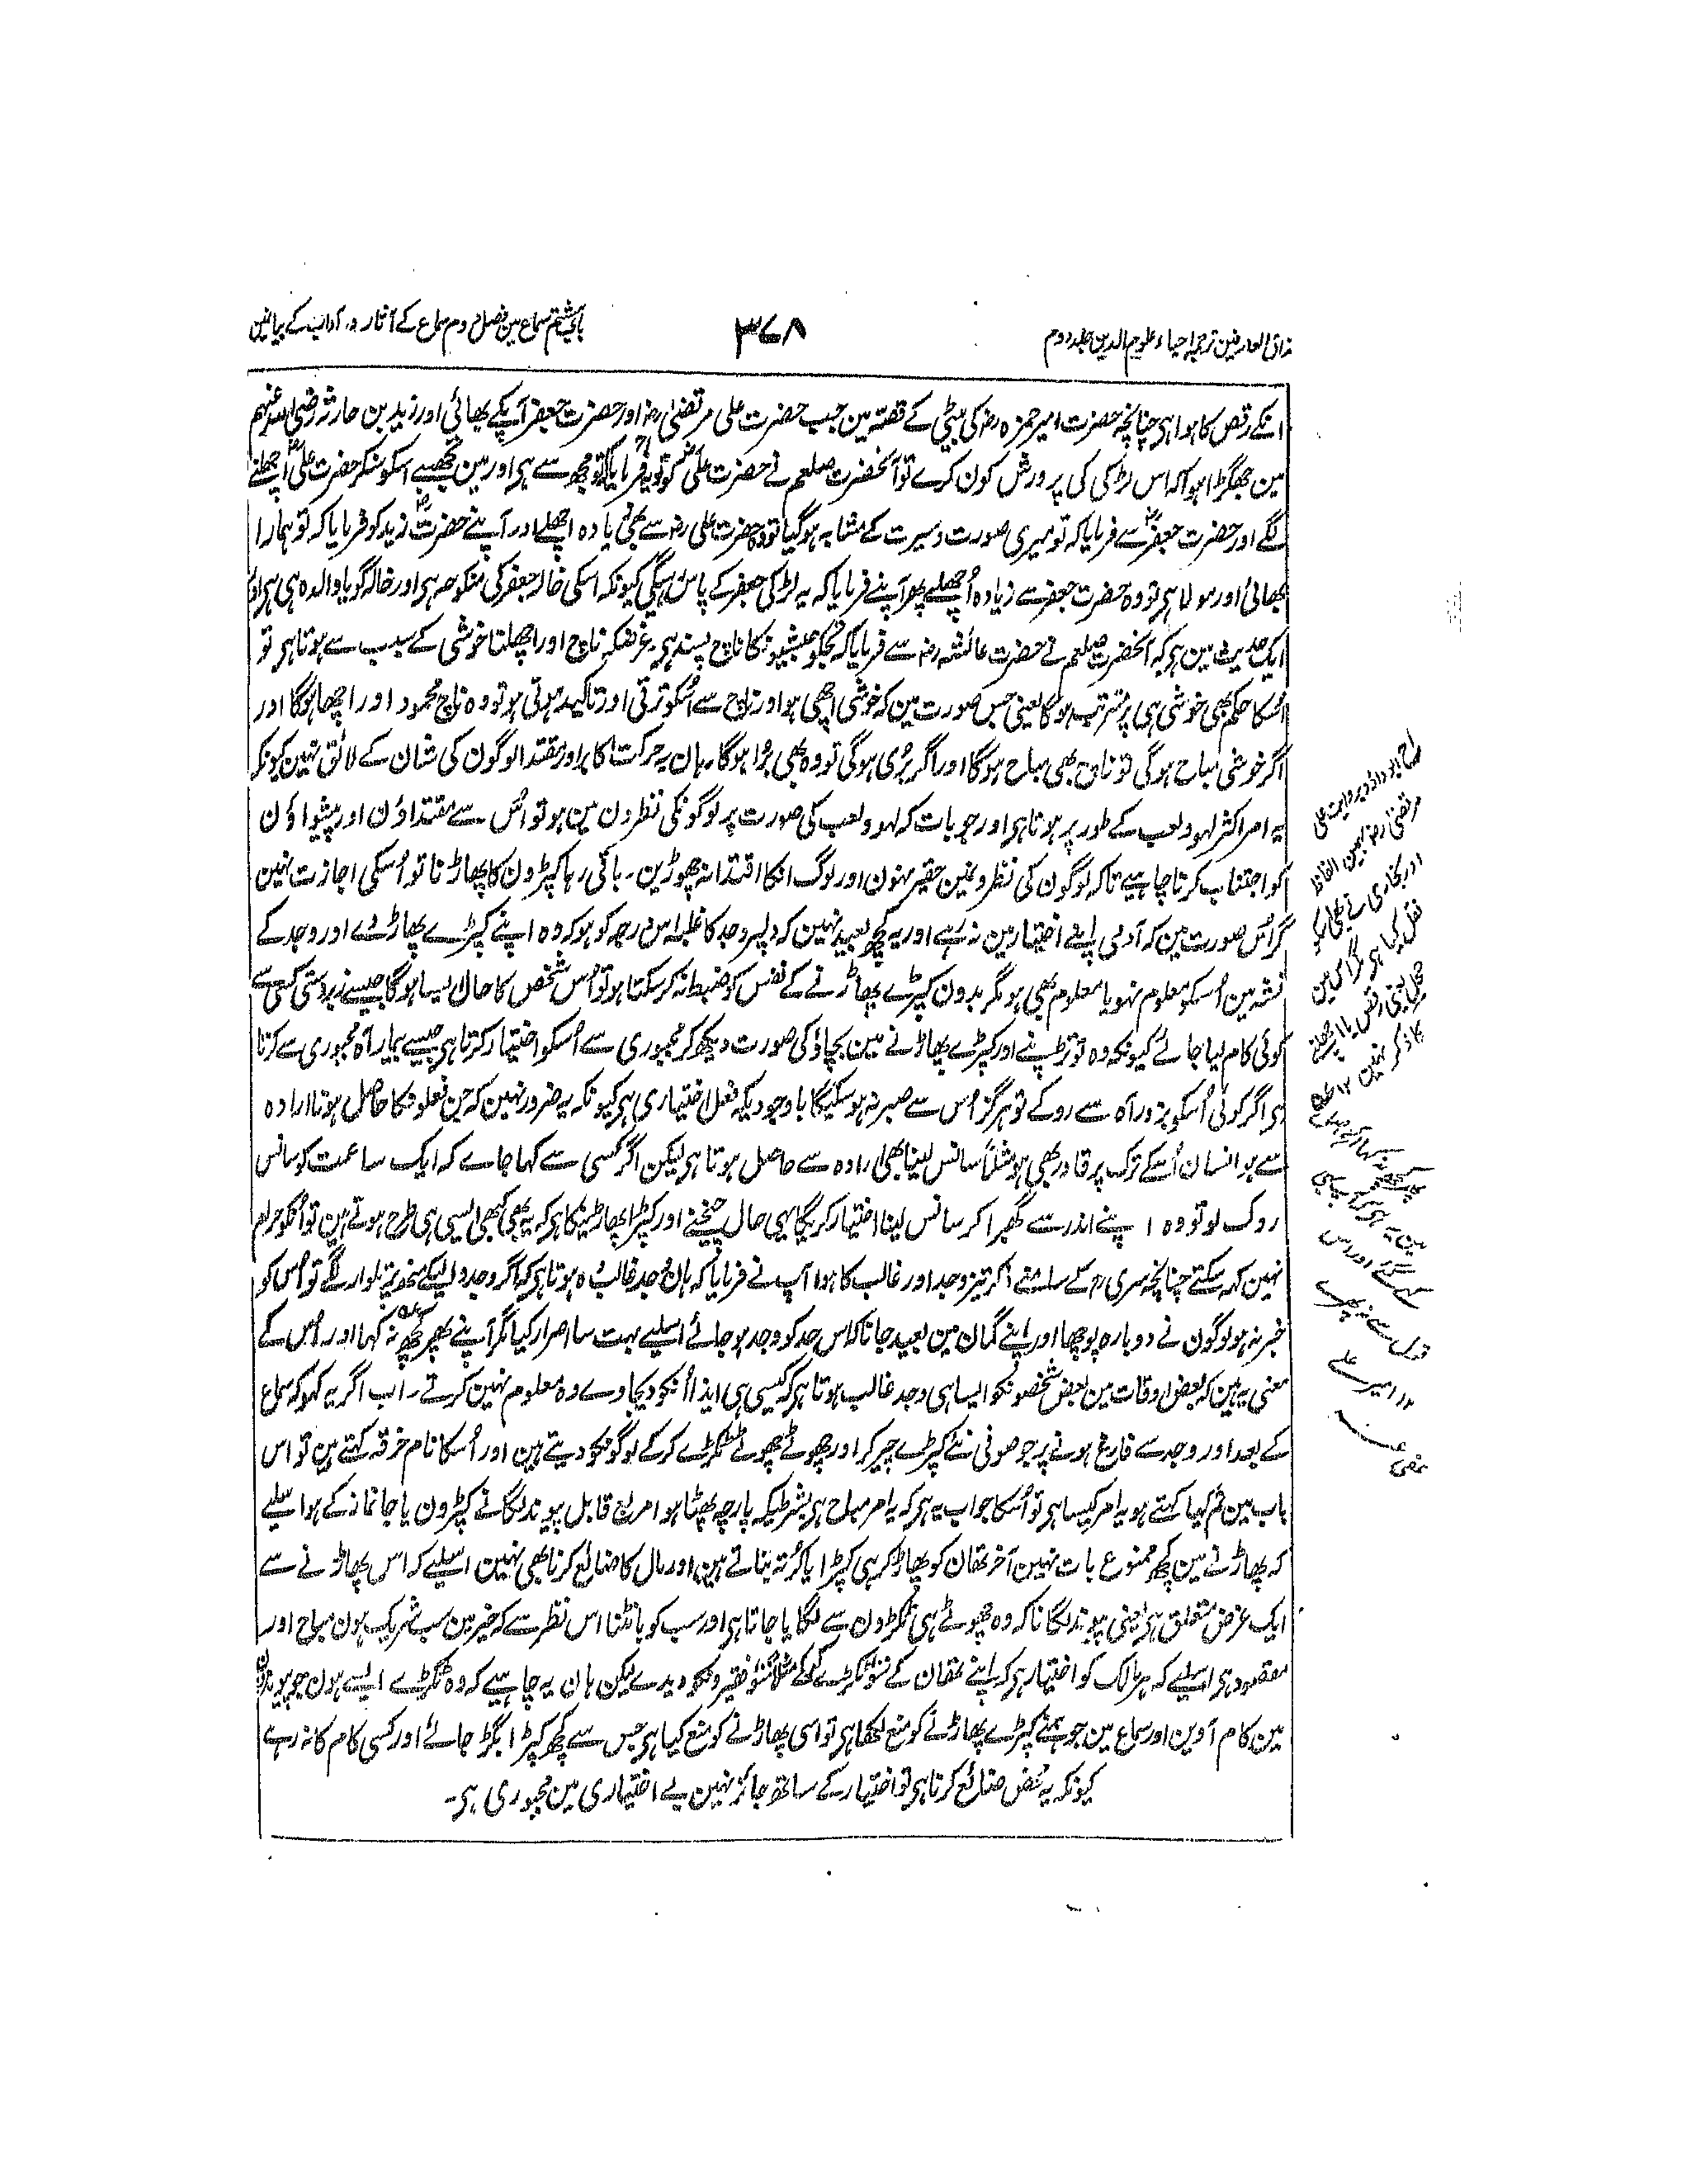 مذاق العارفین ترجمہ احیاء علوم الدین جلد دوم
۳۷۸
باب ہشتم سماع مین فصل دوم سماع کے آثار و آداب کے بیانمین
انکے رقص کا ہوا ہی چنانچہ حضرت امیر حمزہ رضہ کی بیٹی کے قصّہ مین جب حضرت علی مرتضیٰ رضہ اور حضرت جعفر آپکے بھائی اور زید بن حارثہ رضی اللہ عنہم
مین جھگڑا ہوا کہ اس لڑکی کی پرورش کون کرے تو آنحضرت صلعم نے حضرت علیؓ کو تو یہ فرمایا کہ تو مجھ سے ہی اور مین تجھسے اسکو سنکر حضرت علیؓ اچھلنے
لگے اور حضرت جعفرؓ سے فرمایا کہ تو میری صورت و سیرت کے مشابہ ہوگیا تو وہ حضرت علی رضہ سے بھی زیادہ اچھلے اور آپنے حضرت زیدؓ کو فرمایا کہ تو ہمارا
بھائی اور مولا ہی تو وہ حضرت جعفر سے زیادہ اُچھلے پھر آپنے فرمایا کہ یہ لڑکی جعفر کے پاس رہیگی کیونکہ اسکی خالہ جعفر کی منکوحہ ہی اور خالہ گویا والدہ ہی ہی اور
ایک حدیث مین ہی کہ آنحضرت صلعم نے حضرت عائشہ رضہ سے فرمایا کہ تجکو حبشیونکا ناچ پسند ہی۔ غرضکہ ناچ اور اچھلنا خوشی کے سبب سے ہوتا ہی تو
اُسکا حکم بھی خوشی ہی پر مترتب ہوگا یعنی جس صورت مین کہ خوشی اچھی ہو اور ناچ سے اُسکو ترقی اور تاکید ہوتی ہو تو وہ ناچ محمود اور اچھا ہوگا اور
اگر خوشی مباح ہوگی تو ناچ بھی مباح ہوگا اور اگر بُری ہوگی تو وہ بھی بُرا ہوگا۔ ہان یہ حرکت اکابر اور مقتدا لوگون کی شان کے لائق نہین کیونکہ
یہ امر اکثر لہو و لعب کے طور پر ہوتا ہی اور جو بات کہ لہو و لعب کی صورت پر لوگونکی نظرون مین ہو تو اُس سے مقتداؤن اور پیشواؤن
کو اجتناب کرنا چاہیے تاکہ لوگون کی نظرونمین حقیر نہون اور لوگ انکا اقتدا نہ چھوڑین۔ باقی رہا کپڑون کا پھاڑنا تو اُسکی اجازت نہین
مگر اُس صورت مین کہ آدمی اپنے اختیار مین نہ رہے اور یہ کچھ بعید نہین کہ دلپر وجد کا غلبہ اس درجہ کو ہو کہ وہ اپنے کپڑے پھاڑ دے اور وجد کے
نشہ مین اُسکو معلوم نہو یا معلوم بھی ہو مگر بدون کپڑے پھاڑنے کے نفس کو ضبط نہ کر سکتا ہو تو اُس شخص کا حال ایسا ہوگا جیسے زبردستی کسی سے
کوئی کام لیا جائے کیونکہ وہ تو تڑپنے اور کپڑے پھاڑنے مین بچاؤ کی صورت دیکھ کر مجبوری سے اُسکو اختیار کرتا ہی جیسے بیمار آہ مجبوری سے کرتا
ہی اگر کوئی اُسکو بزور آہ سے روکے تو ہرگز اُس سے صبر نہ ہو سکیگا باوجودیکہ فعل اختیاری ہی کیونکہ یہ ضرور نہین کہ جن فعلونکا حاصل ہونا ارادہ
سے ہو انسان اُنکے ترک پر قادر بھی ہو مثلاً سانس لینا بھی ارادہ سے حاصل ہوتا ہی لیکن اگر کسی سے کہا جاے کہ ایک ساعت کو سانس
روک لو تو وہ اپنے اندر سے گھبرا کر سانس لینا اختیار کریگا یہی حال چیخنے اور کپڑا پھاڑنیکا ہی کہ یہ بھی کبھی ایسی ہی طرح ہوتے ہین تو اُنکو حرام
نہین کہہ سکتے چنانچہ سری رح کے سامنے ذکر تیز وجد اور غالب کا ہوا آپ نے فرمایا کہ ہان وجد غالب وہ ہوتا ہی کہ اگر وجد والیکے منھ پر تلوار لگے تو اُس کو
خبر نہ ہو لوگون نے دوبارہ پوچھا اور اپنے گمان مین بعید جانا کہ اس حد کو وجد ہو جائے اسلیے بہت سا اصرار کیا مگر آپنے پھر کچھ نہ کہا اور اُس کے
معنی یہ ہین کہ بعض اوقات مین بعض شخصونکو ایسا ہی وجد غالب ہوتا ہی کہ کیسی ہی ایذا اُنکو دیجاوے وہ معلوم نہین کرتے۔ اب اگر یہ کہو کہ سماع
کے بعد اور وجد سے فارغ ہونے پر جو صوفی نئے کپڑے چیر کر اور چھوٹے چھوٹے ٹکڑے کرکے لوگونکو دیتے ہین اور اُسکا نام خرقہ کہتے ہین تو اس
باب مین تم کیا کہتے ہو یہ امر کیسا ہی تو اُسکا جواب یہ ہی کہ یہ امر مباح ہی بشرطیکہ پارچہ پھٹا ہوا مربع قابل پیوند لگانے کپڑون یا جانماز کے ہو اسلیے
کہ پھاڑنے مین کچھ ممنوع بات نہین آخر تھان کو پھاڑ کر ہی کپڑا یا کُرتہ بناتے ہین اور مال کا ضائع کرنا بھی نہین اسلیے کہ اس پھاڑنے سے
ایک غرض متعلق ہی یعنی پیوند لگانا کہ وہ چھوٹے ہی ٹکڑون سے لگایا جاتا ہی اور سب کو بانٹنا اس نظر سے کہ خیر مین سب شریک ہون مباح اور
مقصود ہی اسلیے کہ ہر مالک کو اختیار ہی کہ اپنے تھان کے سو ٹکڑے کرکے مثلاً سو فقیرونکو دیدے لیکن ہان یہ چاہیے کہ وہ ٹکڑے ایسے ہون جو پیوندون
مین کام آوین اور سماع مین جو ہمنے کپڑے پھاڑنے کو منع لکھا ہی تو اسی پھاڑنے کو منع کیا ہی جس سے کچھ کپڑا بگڑ جائے اور کسی کام کا نہ رہے
کیونکہ یہ محض ضائع کرنا ہی تو اختیار کے ساتھ جائز نہین بے اختیاری مین مجبوری ہی۔
ابوداؤد بروایت علی
مرتضیٰ رضہ بہین الفاظ
اور بخاری نے
نقل کیا ہی مگر اس مین
حجل یعنی رقص یا اچھلنے
کا ذکر نہین ۱۲
امیر علی
عفی عنہ